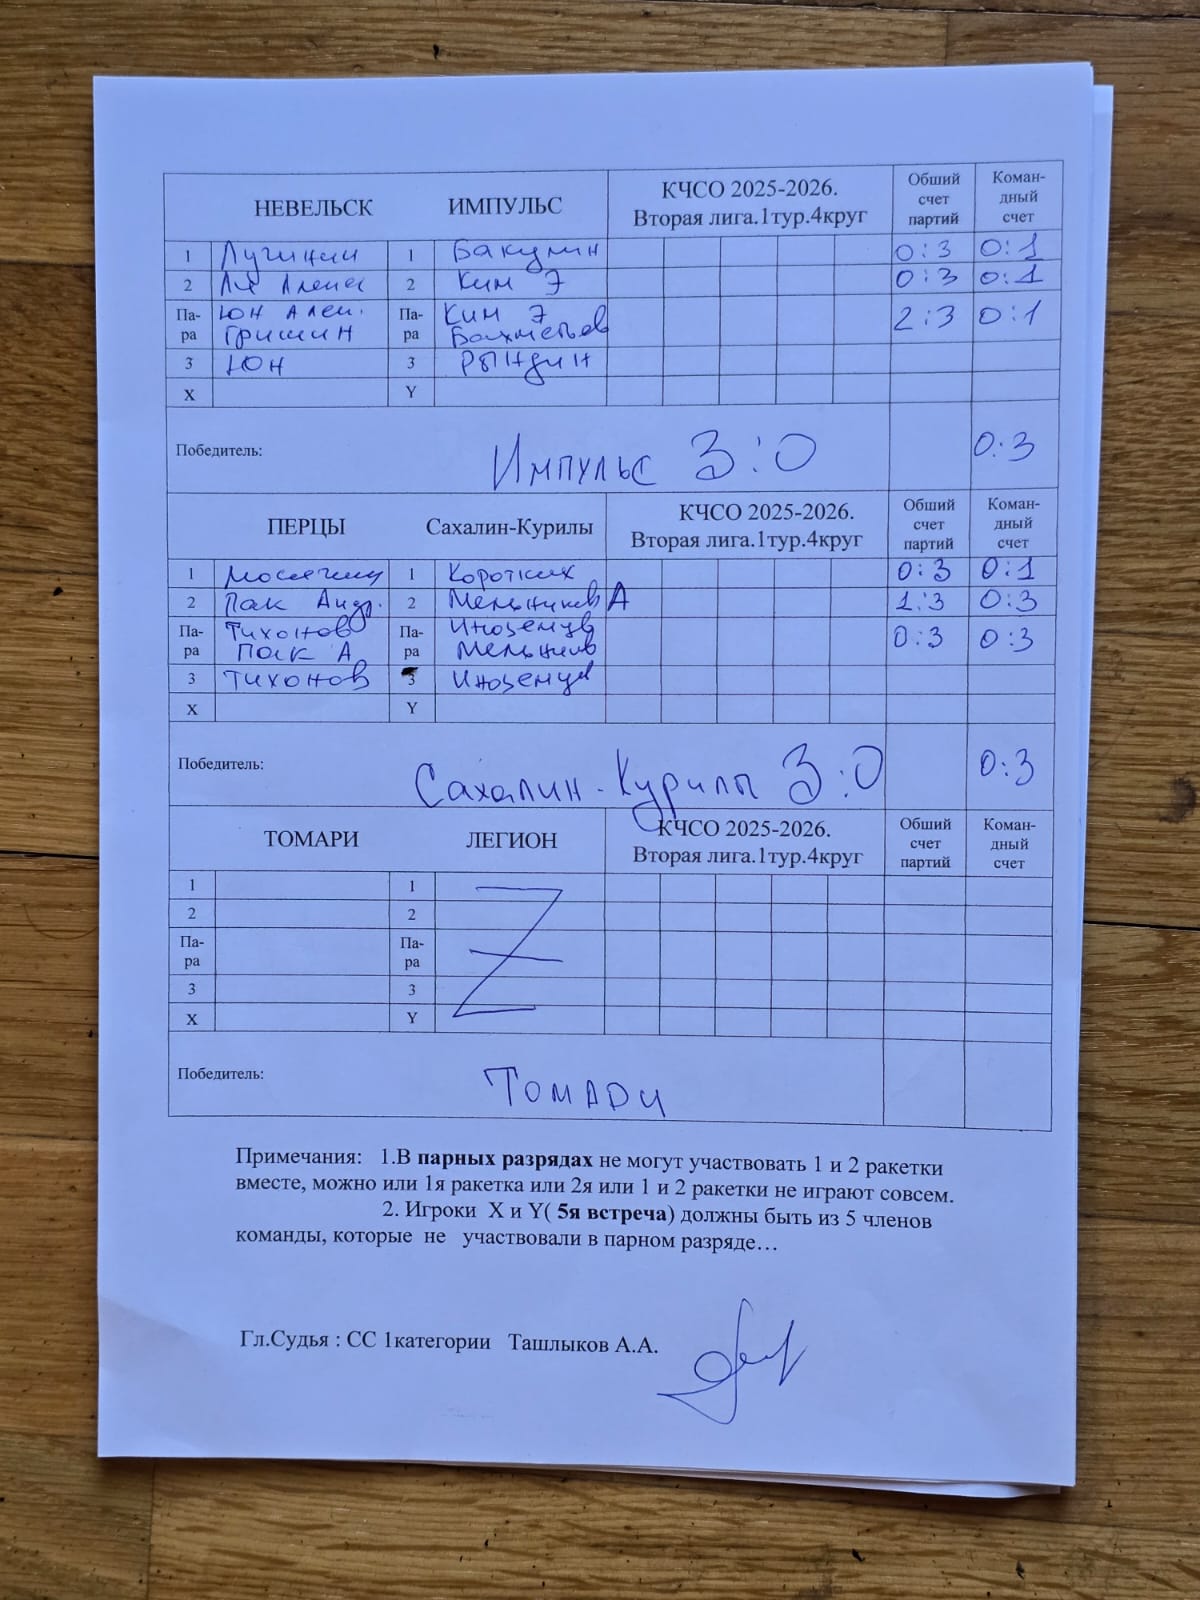 НЕВЕЛЬСК ИМПУЛЬС КЧСО 2025-2026. Вторая лига.1тур.4круг Обший счет партий Коман-дный счет
1 Лучинин 1 Бакулин 0:3 0:1
2 2 Ким Э 0:3 0:1
Па-ра Юн Ален. Гришин Па-ра Ким Э Бахметьов 2:3 0:1
3 Юн 3 Рындин
X Y
Победитель: Импульс 3:0 0:3
ПЕРЦЫ Сахалин-Курилы КЧСО 2025-2026. Вторая лига.1тур.4круг Обший счет партий Коман-дный счет
1 1 Коротких 0:3 0:1
2 Пак Андр. 2 Мельников А 1:3 0:3
Па-ра Тихонов Пак А Па-ра Иноземцв Мельников 0:3 0:3
3 Тихонов 3 Иноземцв
X Y
Победитель: Сахалин-Курилы 3:0 0:3
ТОМАРИ ЛЕГИОН КЧСО 2025-2026. Вторая лига.1тур.4круг Обший счет партий Коман-дный счет
1 1
2 2
Па-ра Па-ра
3 3
X Y
Победитель: Томари
Примечания: 1.В парных разрядах не могут участвовать 1 и 2 ракетки
вместе, можно или 1я ракетка или 2я или 1 и 2 ракетки не играют совсем.
2. Игроки X и Y( 5я встреча) должны быть из 5 членов
команды, которые не участвовали в парном разряде…
Гл.Судья : СС 1категории Ташлыков А.А.